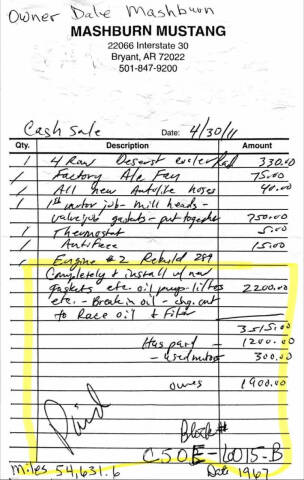 Owner Dale Mashburn
MASHBURN MUSTANG
22066 Interstate 30
Bryant, AR 72022
501-847-9200
Cash sale Date: 4/30/11
Qty. Description Amount
1 4 Row Desert cooler Rad 330.00
1 Factory A/c Fan 75.00
1 All new Autolite hoses 40.00
1 1st motor job - mill heads -
valve job gaskets - put together 750.00
1 Thermostat 5.00
1 Antifreeze 15.00
1 Engine #2 Rebuild 289
Completely & install w/ new
gaskets etc. oil pump - lifters 2200.00
etc. - Break in oil - chg. out
to Race oil & Filter
3515.00
Has paid - 1200.00
- used motor 300.00
owes 1900.00
Paid
Block #
C5OE-6015-B
Miles 54,631.6 Date 1967